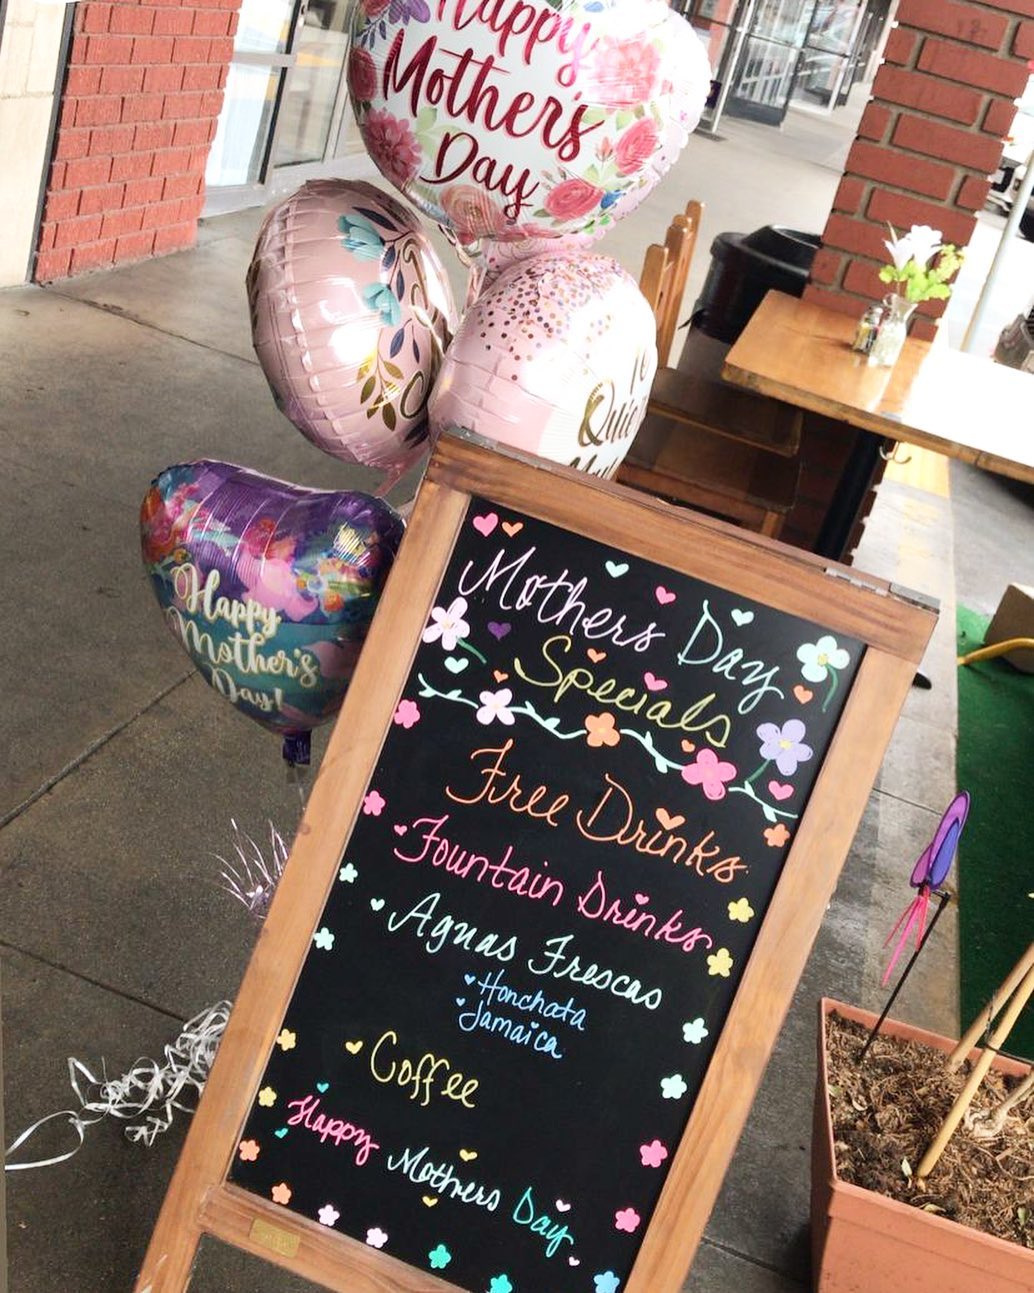 Happy
Mother's
Day
To
Happy
Mother's
Day!
Mothers Day
Specials
Free Drinks
Fountain Drinks
Aguas Frescas
Honchata
Jamaica
Coffee
Happy Mothers Day